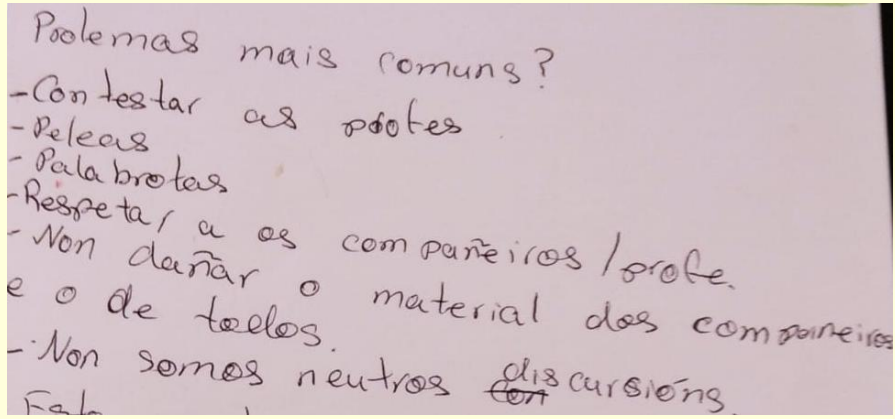 Poolemas mais comuns?
-Contestar as profes
-Peleas
-Palabrotas
-Respetar a os compañeiros/profe.
-Non dañar o material dos compañeiros
e o de todos.
-Non somos neutros discursións.